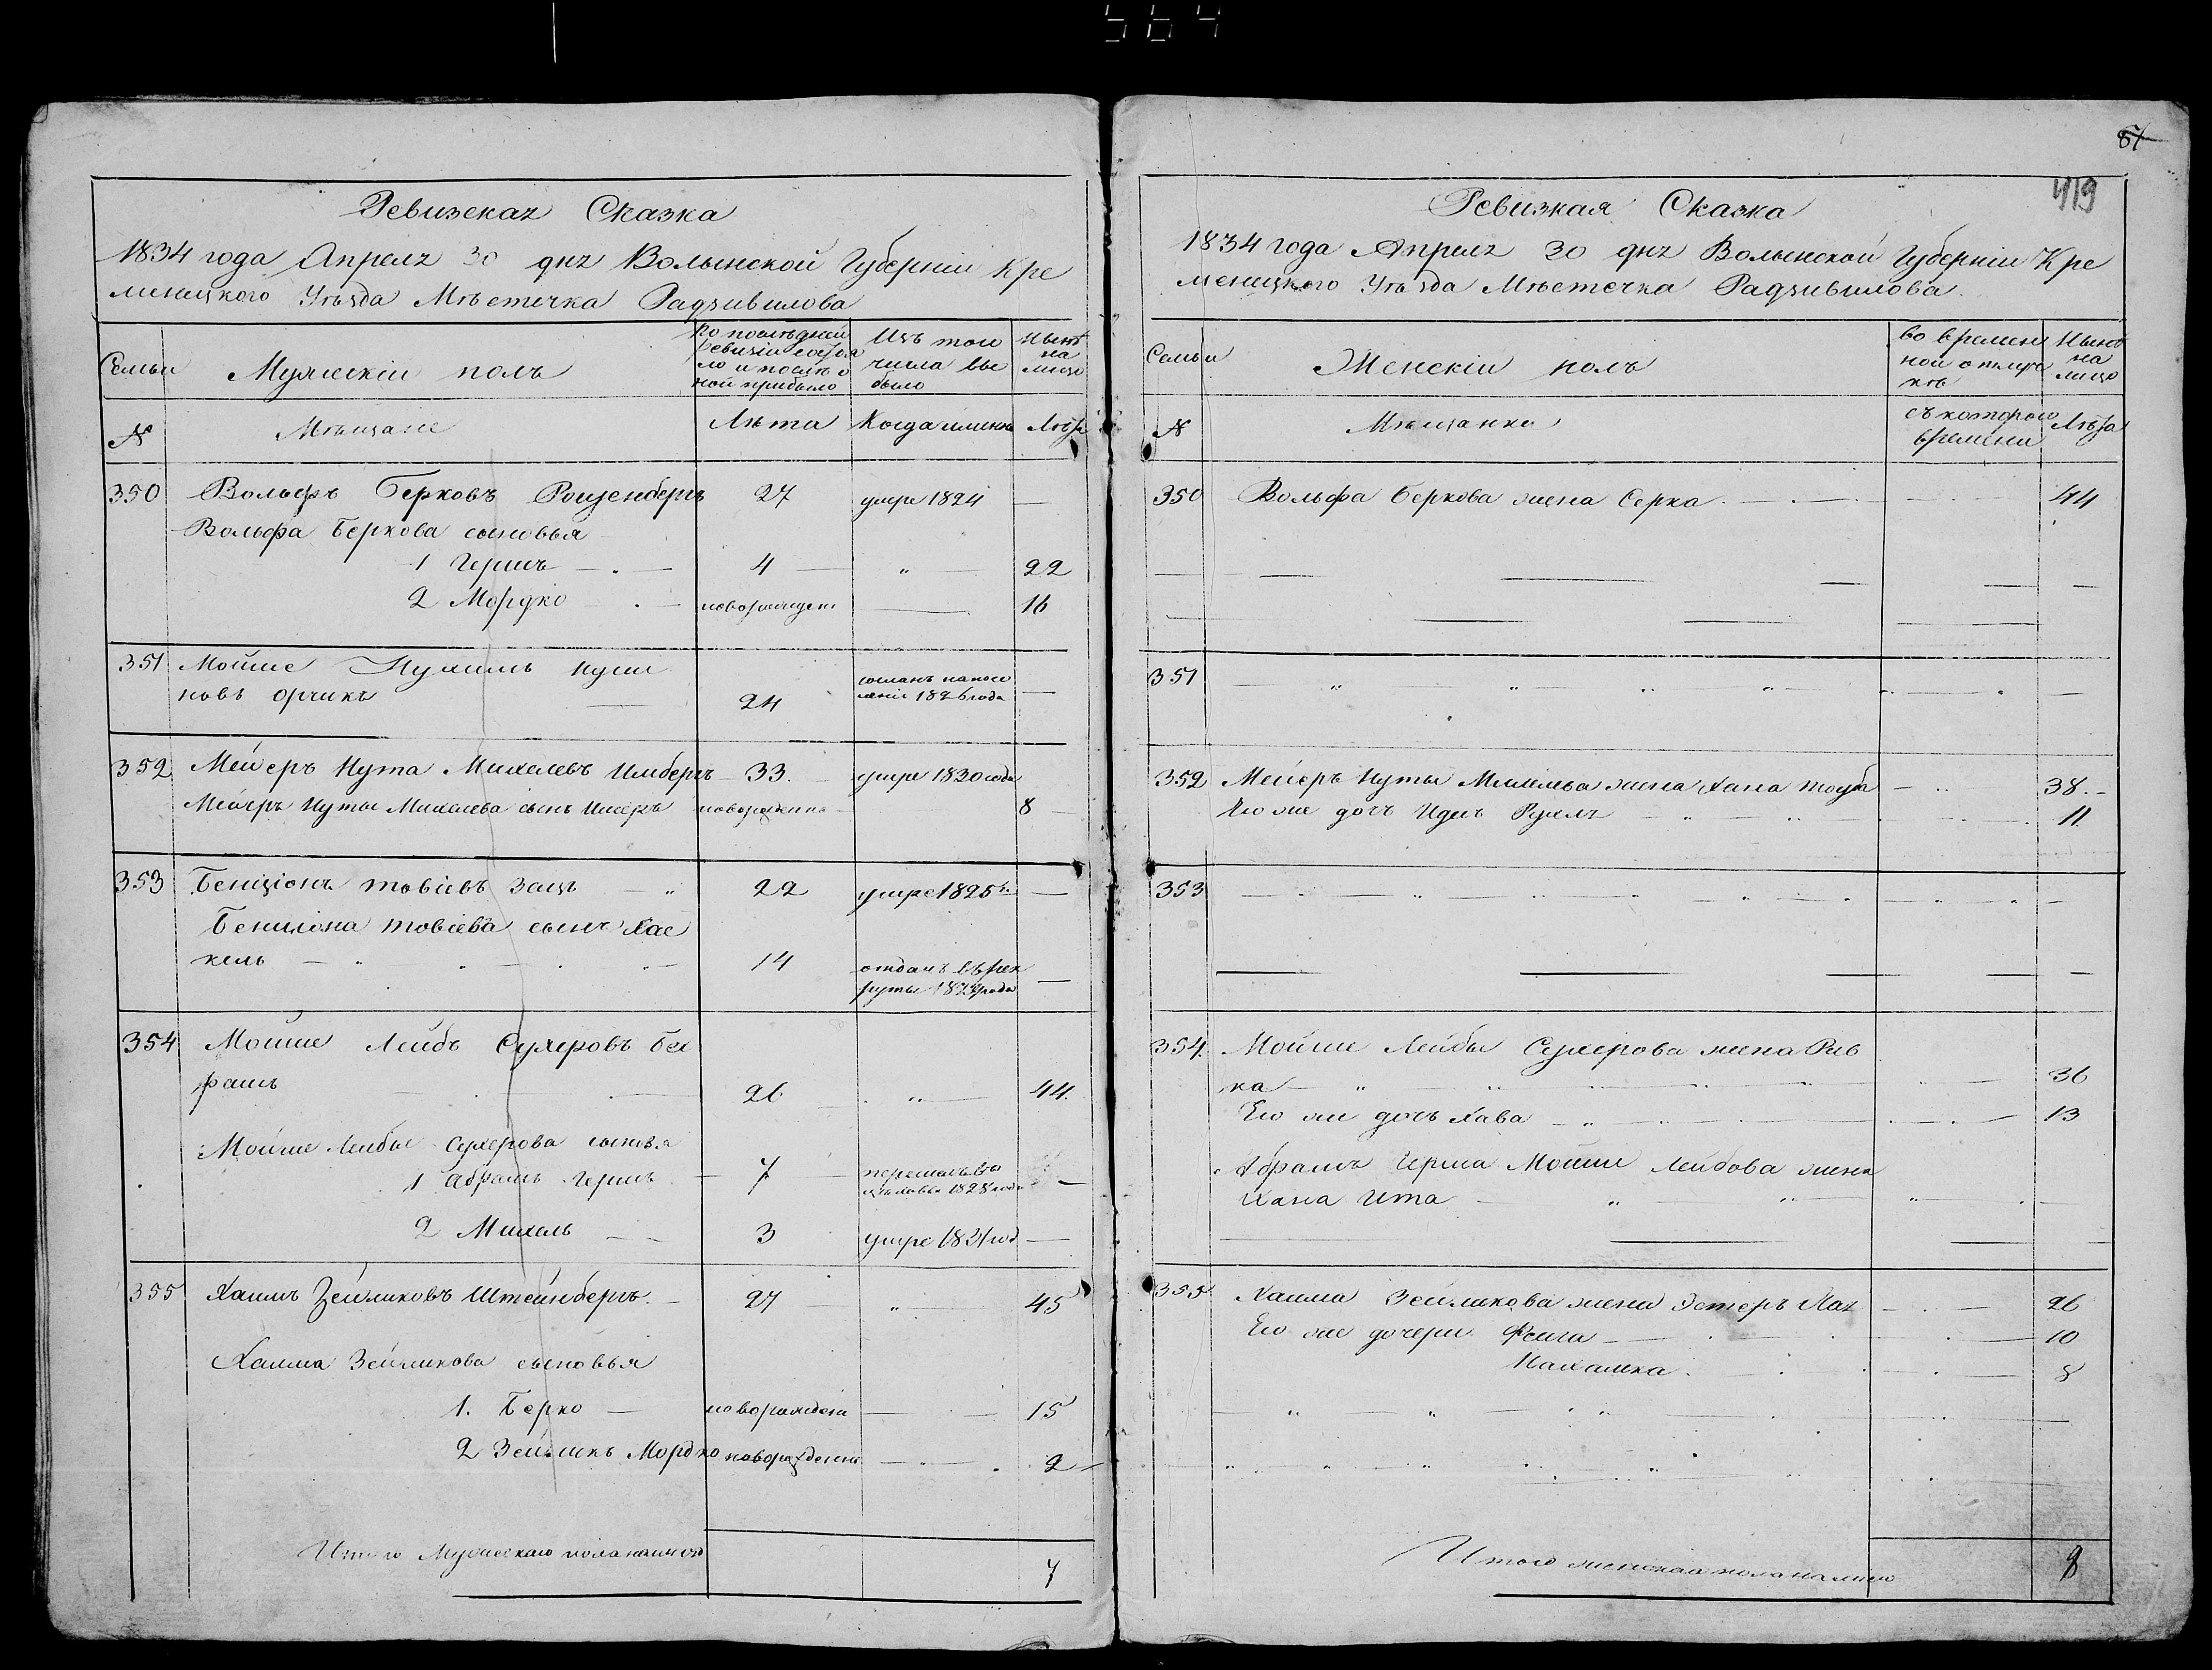 564
Ревизская Сказка
1834 года Апреля 30 дня Волынской Губерніи Кре
менецкого Уѣзда Мѣстечка Радзивилова
Семьи
Мужескій полъ
по послѣдней ревизіи состоя ло и послѣ о ной прибыло
Изъ того числа вы было
Нынѣ на лицо
№
Мѣщане
Лѣта
Когда именно
Лѣта
350 Вольфъ Берковъ Розенбергъ 27 умре 1824 —
Вольфа Беркова сыновья
1 Гершъ — 4 — „ 22
2 Мордко — новорожден — 16
351 Мойше
новъ 24 сосланъ на посе леніе 1826 года —
352 Мейеръ Нута Михелевъ Имбергъ — 33. — умре 1830 года
Мейеръ Нуты Михелева сынъ новорожденъ 8
353 Бенціонъ товіевъ Зацъ — „ 22 умре 1825 г. —
Бенціона товіева сынъ Хас
кель — 14 отданъ въ рек руты года —
354 Мойше Лейбъ Сухеровъ
26 „ 44.
Мойше Лейбы Сухерова сыновья
1 Абрамъ Гершъ — 7 — 1828 года —
2 Михель — 3 умре 1831 год —
355 Хаимъ Зейликовъ Штейнбергъ. — 27 — „ 45
Хаима Зейликова сыновья
1. Берко — новорожденъ — 15
2 Зейликъ Мордко новорожденъ — 2
Итого Мужескаго пола налицо 7
61
419
Ревизкая Сказка
1834 года Апреля 30 дня Волынской Губерніи Кре
менецкого Уѣзда Мѣстечка Радзивилова.
Семьи
Женскій полъ
во времен ной отлуч кѣ
Нынѣ на лицо
№
Мѣщанки
съ которого времени
Лѣта
350 Вольфа Беркова жена Серка — 44
351
352 Мейеръ Нуты Михелева жена Хана тоуба — 38. –
Его же дочь Рухля 11.
353
354. Мойше Лейбы Сухерова жена Рив
ка — 36
Его же дочь Хава — 13
Абрамъ Герша Мойше Лейбова жена
Хана Ита —
355 Хаима Зейликова жена Эстеръ Лая — 26
Его же дочери Фейга — 10
8
Итого женскаго пола налицо 8